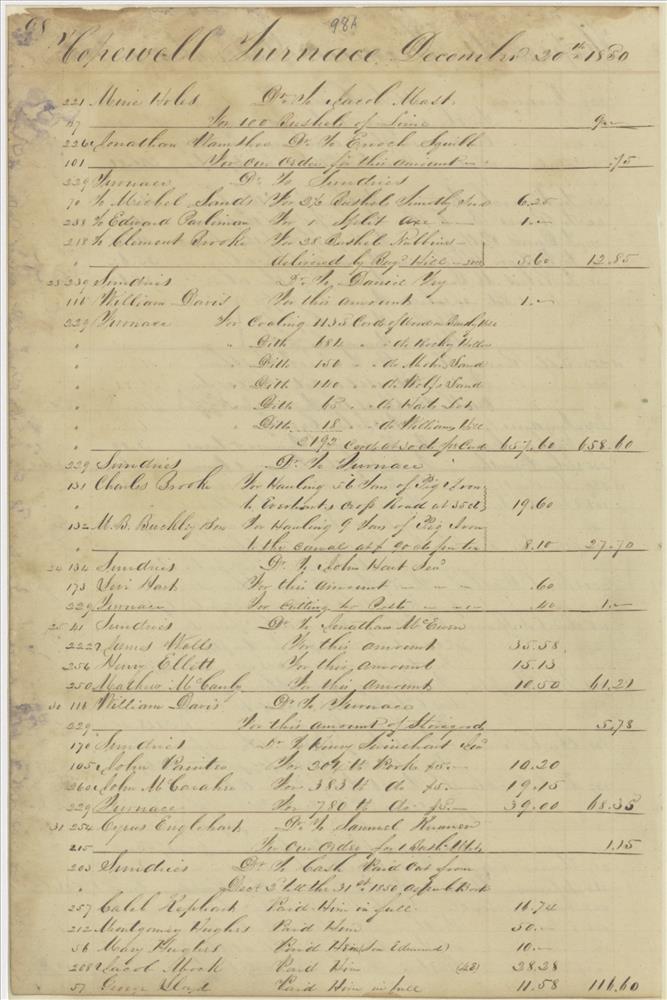 98 98A
Hopewell Furnace, December 20th 1850
221 Mine Holes Dr. To Jacob Mast
97 For 100 Bushels of Lime 9.–
226 Jonathan Dr. To Enoch Squibb
101 For Our Order for this amount .75
229 Furnace Dr. To Sundries
70 To Michel Sands For 2½ Bushels Timothy Seed 6.25
238 To Edward For 1 Split Axe 1.–
218 To Clement Brooke For 28 Bushels Nubbins
" delivered by 5.60 12.85
23 239 Sundries Dr. To Daniel Fry
118 William Davis For this amount 1.–
229 Furnace For Coaling 1138 Cords of Wood on
" " Ditto 684 " do
" " Ditto 150 " do Sand
" " Ditto 140 " do Wolfs Sand
" " Ditto 63 " do Lot
" " Ditto 18 " do Williams
" 2192 Cords at 30 cts per Cord 657.60 658.60
229 Sundries Dr. To Furnace
131 Charles Brooke For Hauling 56 Tons of Pig Iron
" to Everharts Cross Road at 35 cts 19.60
132 M.B. Buckley & Son For Hauling 9 Tons of Pig Iron
" to the Canal at 90 cts per ton 8.10 27.70
24 134 Sundries Dr. To John Hart Senr
173 Levi Hart For this amount .60
229 Furnace For Cutting Posts .40 1.–
25 41 Sundries Dr. To Jonathan McEwen
222 James Wells For this amount 35.58
256 Henry Ellett For this amount 15.13
250 Mathew For this amount 10.50 61.21
30 118 William Davis Dr. To Furnace
229 For this amount of Storegood 5.78
170 Sundries Dr. To Henry Swinehart Senr
105 John Painter For 204 lb Pork $5.– 10.20
260 John For 383 lb do $5.– 19.15
229 Furnace For 780 lb do $5.– 39.00 68.35
31 254 Cyrus Englehart Dr. To Samuel
215 For Our Order for 1.15
203 Sundries Dr. To Cash Paid Out from
" Decr 2 till the 31st 1850 as per C Book
257 Calel Kephart Paid Him in full 16.74
212 Montgomery Hughes Paid Him 50.–
56 Mary Hughes Paid Him (Son Edmund) 10.–
208 Jacob Mock Paid Him 28.28
57 George Lloyd Paid Him in full 11.58 116.60